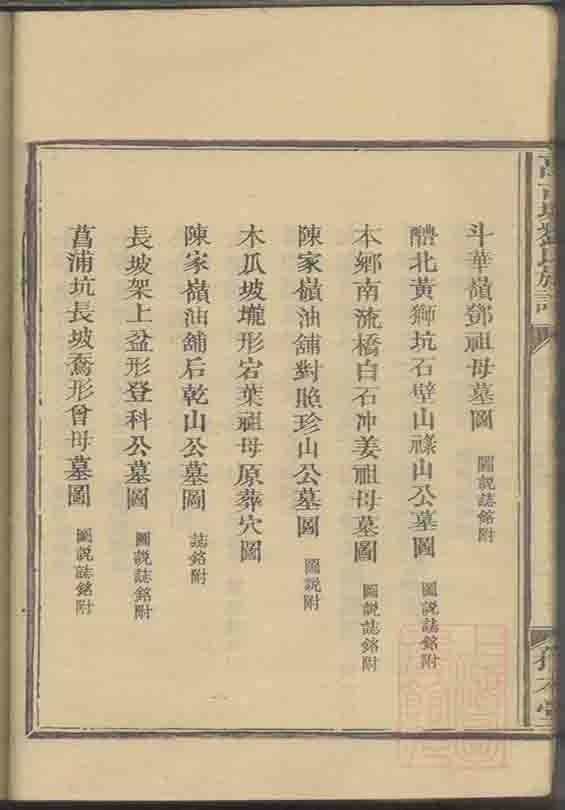 斗華嶺鄧祖母墓圖 圖說誌銘附
醴北黃獅坑石壁山祿山公墓圖 圖說誌銘附
本鄉南流橋白石冲姜祖母墓圖 圖說誌銘附
陳家嶺油舖對照珍山公墓圖 圖說附
木瓜坡壠形宕葉祖母原葬穴圖
陳家嶺油舖后乾山公墓圖 誌銘附
長坡架上盆形登科公墓圖 圖說誌銘附
菖浦坑長坡喬形曾母墓圖 圖說誌銘附